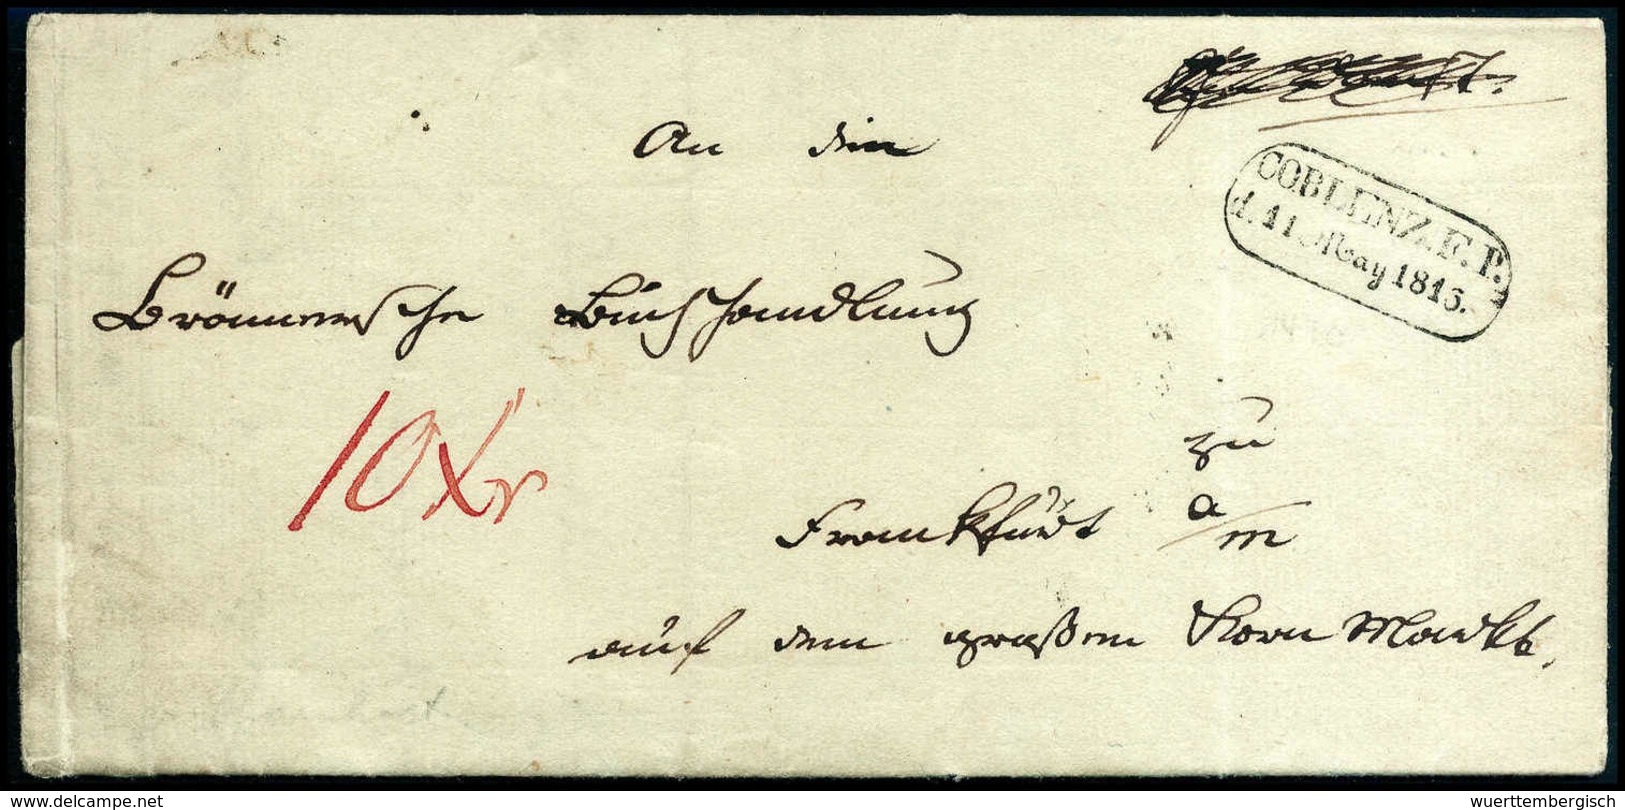 An die
COBLENZ.F.P.
d. 11 May 1815.
Brönnersche Buchhandlung
10 Xr
zu
Frankfurt a/m
auf dem großen Korn Markt.
wuerttembergisch
powered by HipStamp.com